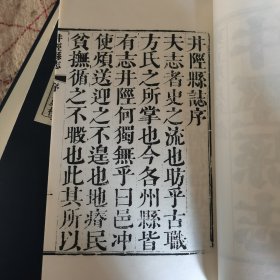 井陘縣誌序
夫志者史之流也昉乎古職
方氏之所掌也今各州縣皆
有志井陘何獨無乎曰邑冲
使煩送迎之不遑也地瘠民
貧撫循之不暇也此其所以
井陘縣志
序